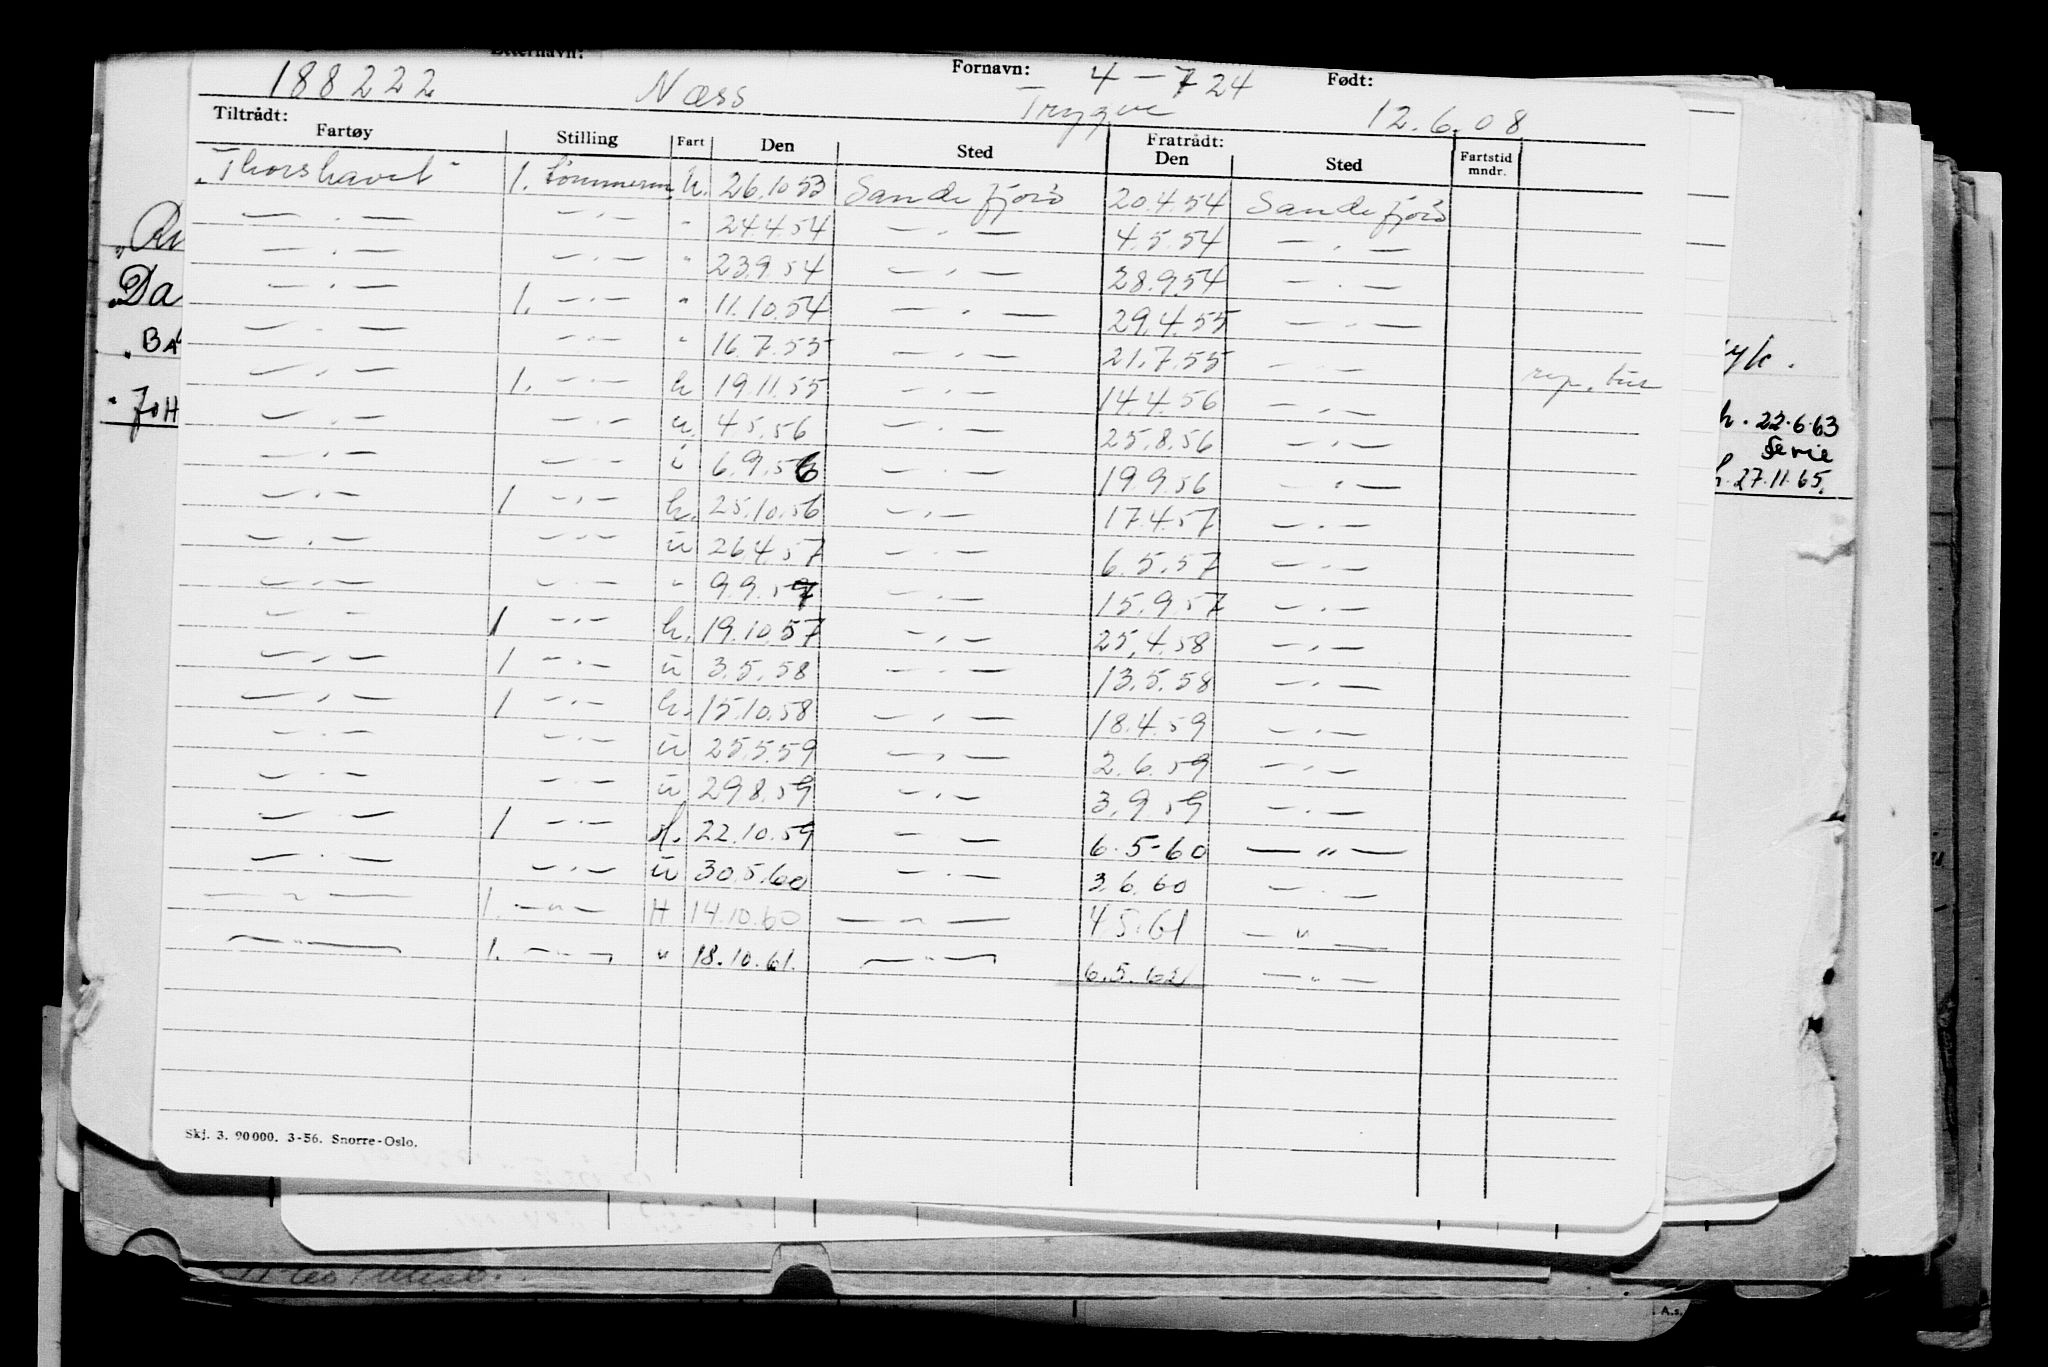 Etternavn: Fornavn: 4 – 724 Født:
188222 Næss Trygve 12.6.08
Tiltrådt: Fratrådt:
Fartøy Stilling Fart Den Sted Den Sted Fartstid mndr.
"Thorshavet" 1. tømmerm. h. 26.10 53 Sandefjord 20.4.54 Sandefjord
— " — — " — " 24.4.54 — " — 4.5.54 — " —
— " — — " — " 23.9.54 — " — 28.9.54 — " —
— " — 1. — " — " 11.10.54 — " — 29.4.55 — " —
— " — — " — " 16.7.55 — " — 21.7.55 — " — rep. tur
— " — 1. — " — h 19.11.55 — " — 14.4.56 — " —
— " — — " — u. 4.5.56 — " — 25.8.56 — " —
— " — — " — u 6.9.56 — " — 19.9.56 — " —
— " — 1 — " — h. 25.10.56 — " — 17.4.57 — " —
— " — — " — u 26.4.57 — " — 6.5.57 — " —
— " — — " — " 9.9.57 — " — 15.9.57 — " —
— " — 1 — " — h. 19.10.57 — " — 25.4.58 — " —
— " — 1 — " — u 3.5.58 — " — 13.5.58 — " —
— " — 1 — " — h. 15.10.58 — " — 18.4.59 — " —
— " — — " — u 25.5.59 — " — 2.6.59 — " —
— " — — " — u 29.8.59 — " — 3.9.59 — " —
— " — 1 — " — H. 22.10.59 — " — 6.5-60 — " —
— " — — " — u 30.5.60 — " — 3.6.60 — " —
— " — 1. — " — H 14.10.60 — " — 4.5.61 — " —
— " — 1. — " — " 18.10.61. — " — 6.5.62 — " —
Skj. 3. 90000. 3-56. Snorre-Oslo.
Da
"BA
"JOH
h. 22.6.63
Serie
h. 27.11.65.
A.s.